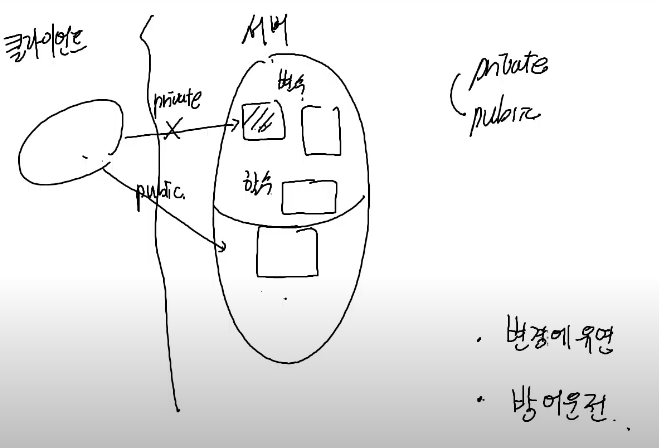 클라이언트
서버
변수
private
함수
public.
private
public
· 변경에 유연
· 방어운전..